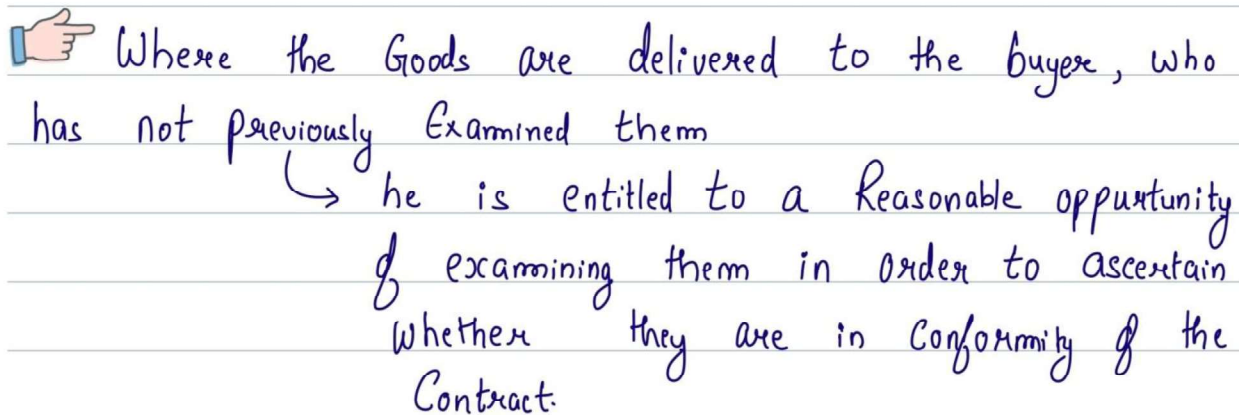 Where the Goods are delivered to the buyer, who
has not previously Examined them
he is entitled to a Reasonable oppurtunity
of examining them in order to ascertain
whether they are in Conformity of the
Contract.